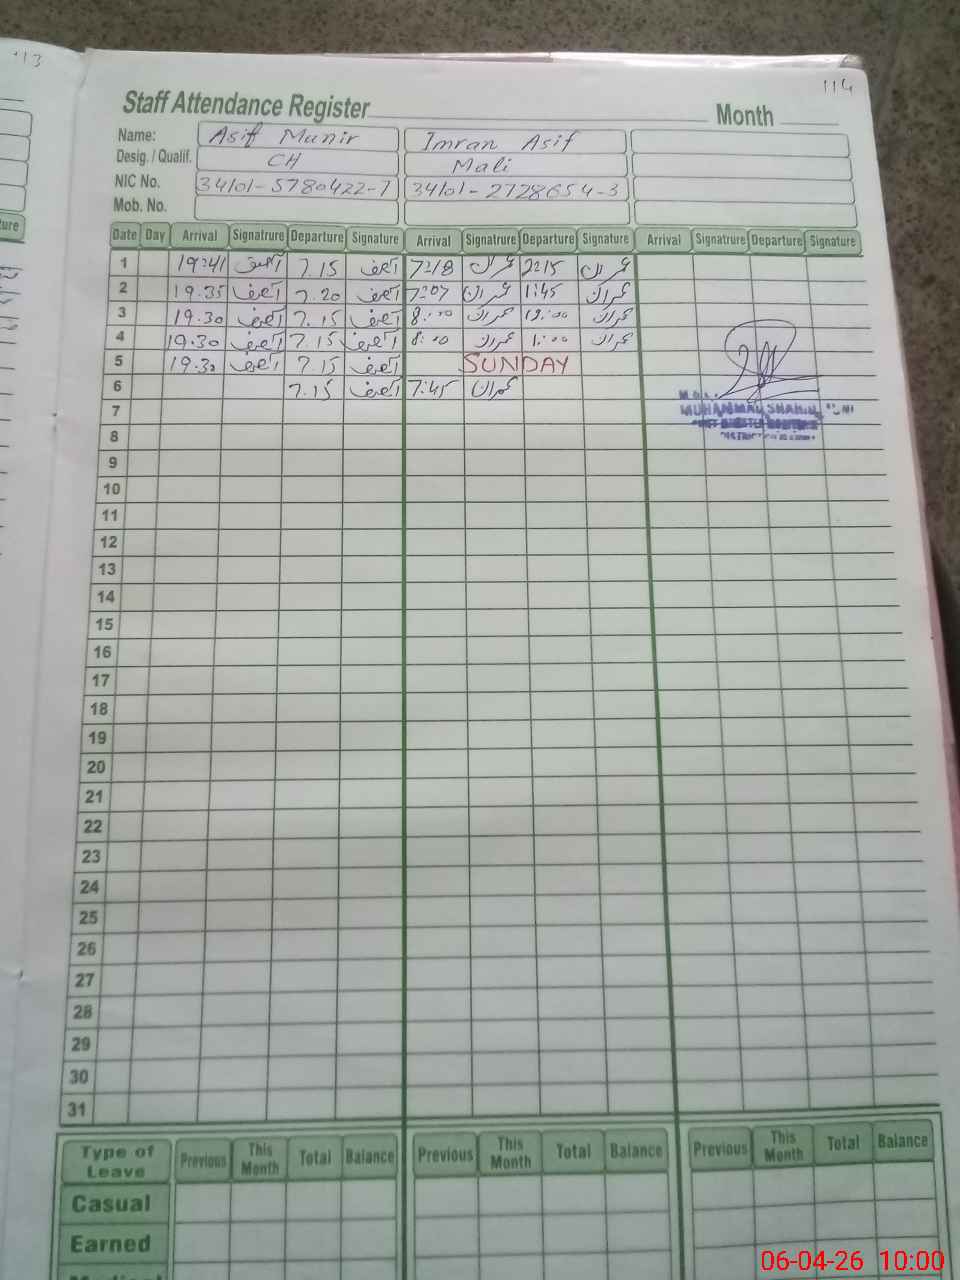 113
114
Staff Attendance Register
Month
Name: Asif Munir Imran Asif
Desig. / Qualif. CH Mali
NIC No. 34101-5780422-7 34101-2728654-3
Mob. No.
Date Day Arrival Signatrure Departure Signature Arrival Signatrure Departure Signature Arrival Signatrure Departure Signature
1 19:41 آصف 7.15 آصف 7:18 عمران 2:15 عمران
2 19.35 آصف 7.20 آصف 7:07 عمران 1:45 عمران
3 19.30 آصف 7.15 آصف 8:00 عمران 12:00 عمران
4 19.30 آصف 7.15 آصف 8:00 عمران 1:00 عمران
5 19.30 آصف 7.15 آصف SUNDAY
6 7.15 آصف 7:45 عمران
7
MUHAMMAD
8
9
10
11
12
13
14
15
16
17
18
19
20
21
22
23
24
25
26
27
28
29
30
31
Type of Leave Previous This Month Total Balance Previous This Month Total Balance Previous This Month Total Balance
Casual
Earned
06-04-26 10:00